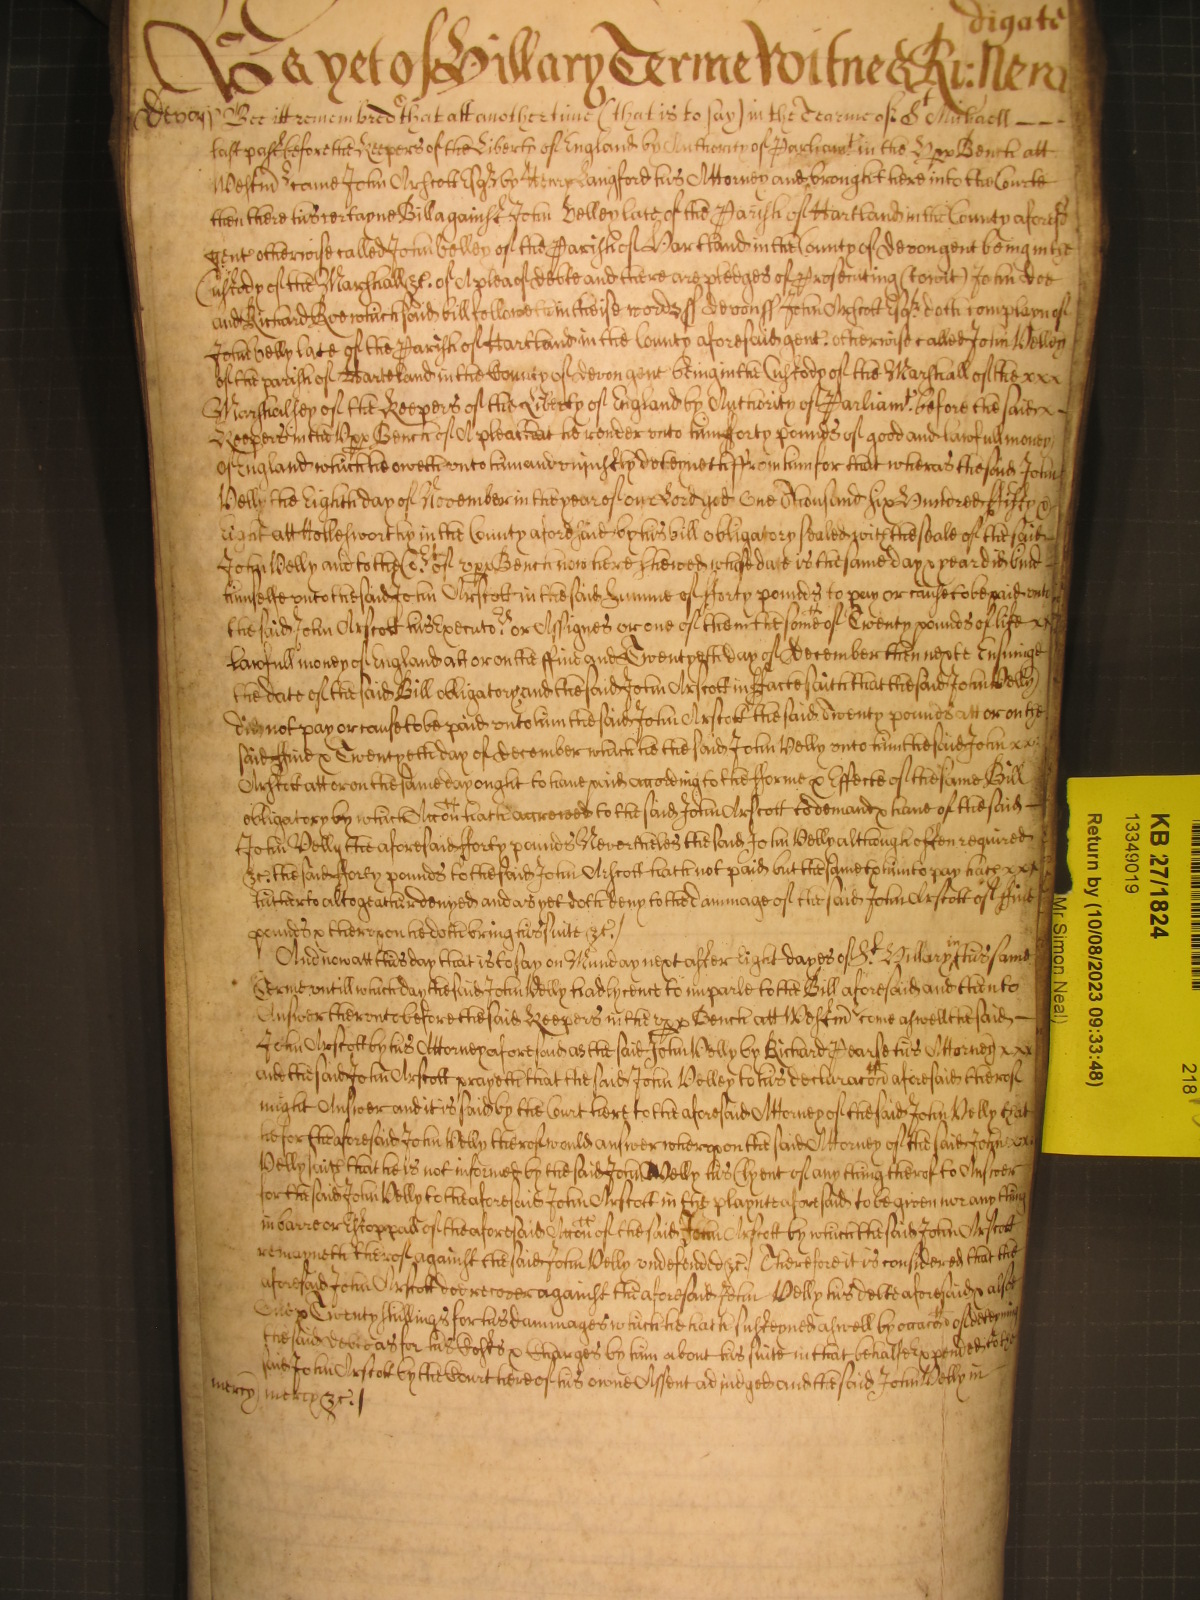 digate
As yet of Hillary Terme Witnes Ri: New
Devon Bee itt remembred that att another time (that is to say) in the Tearme of St Michaell
last past before the Keepers of the Liberty of England by Authority of Parliamt in the Vpp Bench att
Westmr came John Arscott Esqr by Henry Langford his Attorney and brought here into the Courte
then there his certayne Bill against John Velley late of the Parish of Hartland in the County aforesd
gent otherwise called John Velley of the Parish of Hartland in the County of Devon gent being in the
Custody of the Marshall &c. of A plea of debte and there are pledges of Prosecuting (towit) John Doe
and Richard Roe which said bill followeth in theise words ss Devon ss John Arscott Esqr doth complayn of
John Velly late of the Parish of Hartland in the County aforesaid gent. otherwise called John Velley
of the parish of Harteland in the County of Devon gent being in the Custody of the Marshall of the xxx
Marshalsey of the Keepers of the Liberty of England by Authority of Parliamt. before the said x
Keepers in the Vpp Bench of A plea that he render vnto him fforty pounds of good and lawfull money
of England which he oweth vnto him and vniustly deteyneth ffrom him for that wheras the said John
Velly the Eighth day of November in the yeare of our Lord god One Thousand six Hundred ffifty &
Eight att Hollesworthy in the County aforesaid by his bill obligatory sealed with the seale of the said
John Velly and to the Cort of vpp Bench now here shewed whose date is the same day & year did bind
himselfe vnto the said John Arscott in the said summe of fforty pounds to pay or cause to be paid vnto
the said John Arscott his Executors or Assignes or one of them the some of Twenty pounds of like xx
Lawfull money of England att or on the ffive and Twentyeth day of December then nexte Ensuinge
the date of the said Bill obligatory and the said John Arscott in ffacte saith that the said John Velly
did not pay or cause to be paid vnto him the said John Arscott the said Twenty pounds att or on the
said ffive & Twentyeth day of December which he the said John Velly vnto him the said John xx
Arscott att or on the same day ought to have paid accoding to the fforme & Effecte of the same Bill
obligatory by which Accon hath accrewed to the said John Arscott to demand & have of the said
John Velly the aforesaid fforty pounds Neverthelesse the said John Velly although often required
&c. the said fforty pounds to the said John Arscott hath not paid but the same to him to pay hath xxx
hitherto altogeather denyed and as yet doth deny to the dammage of the said John Arscott of ffive
pounds & thereupon he doth bring his suite &c./
And now att this day that is to say on Munday next after Eight dayes of St Hillary in this same
Terme vntill which day the said John Velly had lycence to imparle to the Bill aforesaid and then to
Answer thervnto before the said Keepers in the vpp Bench att Westmr come aswell the said
John Arscott by his Attorney aforesaid as the said John Velly by Richard Pearse his Attorney xxx
and the said John Arscott prayeth that the said John Velley to his declaracon aforesaid therof
might Answer and it is said by the Court here to the aforesaid Attorney of the said John Velly that
he for the aforesaid John Velly therof would answer wherupon the said Attorney of the said John xx
Velly saith that he is not informed by the said John Velly his Clyent of any thing therof to Answer
for the said John Velly to the aforesaid John Arscott in the playnte aforesaid to be given nor any thing
in barre or Estoppall of the aforesaid Accon of the said John Arscott by which the said John Arscott
remayneth therof against the said John Velly vndefended &c. Therefore it is considered that the
aforesaid John Arscott doe recover against the aforesaid John Velly his debte aforesaid & alsoe
One & Twenty shillings for his dammages which he hath susteyned aswell by occacon of deteyning
the said debte as for his Costs & Charges by him about his suite in that behalfe Expended to the
said John Arscott by the Court here of his owne Assent adiudged and the said John Velly in
mercy mercy &c./
KB 27/1824
13349019
Return by (10/08/2023 09:33:48)
Mr Simon Neal)
218